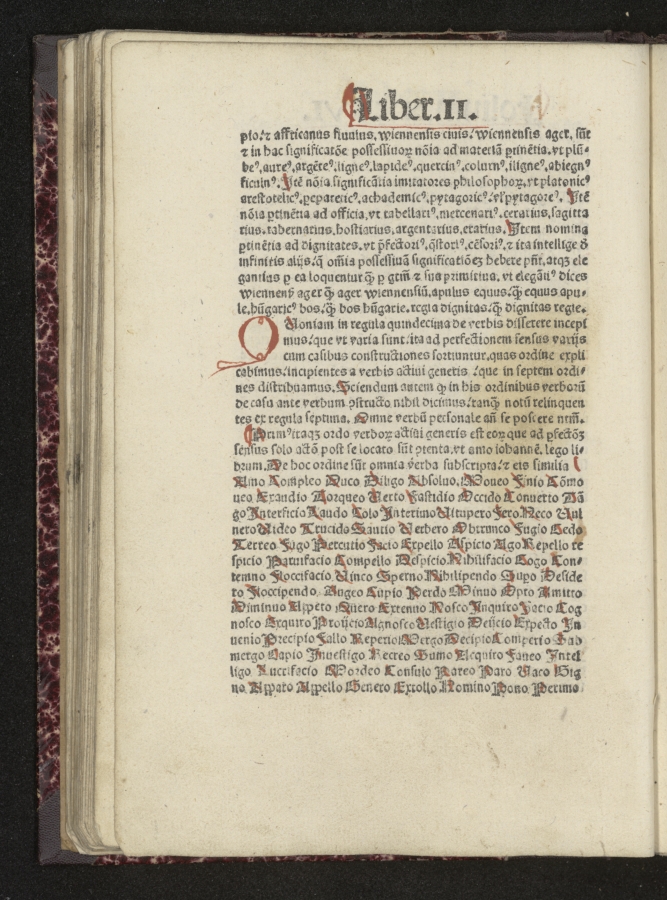 Liber.II.
pio.⁊ affricanus fluuius, wiennensis ciuis. wiennensis ager. sūt
⁊ in hac significatōe possessiuoꝝ nōia ad materiā ꝑtinētia. vt plū-
beꝰ, aureꝰ, argēteꝰ, ligneꝰ, lapideꝰ, quercinꝰ, colurnꝰ, iligneꝰ, abiegnꝰ
ficulnꝰ. Itē nōia significātia imitatores philosophoꝝ, vt platonicꝰ
arestotelicꝰ, peripateticꝰ, achademicꝰ, pytagoricꝰ. Itē
nōia ꝑtinētia ad officia, vt tabellariꝰ, mercenariꝰ, cerarius, sagitta
rius, tabernarius, hostiarius, argentarius, erarius. Item nomina
ꝑtinētia ad dignitates, vt p̄fectoriꝰ, q̄storiꝰ, cēsoriꝰ, ⁊ ita intellige ď
infinitis alijs. q̄ om̄ia possessiuā significationē habere pn̄t, atqꝫ ele
gantius ꝑ ea loquentur q̄ꝫ ꝑ gt̄m ⁊ sua primitiua. vt elegātiꝰ dices
wiennens̄ ager q̄ꝫ ager wiennensiū, apulus equus. q̄ꝫ equus apu-
le. hūgaricꝰ bos. q̄ꝫ bos hūgarie. regia dignitas. q̄ꝫ dignitas regie.
QUoniam in regula quindecima de verbis disserere incepi
mus. que vt varia sunt. ita ad perfectionem sensus varijs
cum casibus constructiones sortiuntur, quas ordine expli
cabimus. incipientes a verbis actiui generis. que in septem ordi-
nes distribuamus. Sciendum autem ꝙ in his ordinibus verborū
de casu ante verbum ꝯstructo nihil dicimus. tanq̄ꝫ notū relinquen
tes ex regula septima. Omne verbū personale an̄ se poscere ntm̄.
Primꝰ itaqꝫ ordo verboꝝ actiui generis est eoꝝ que ad ꝑfectōꝫ
sensus solo actō post se locato sūt ꝯtenta. vt amo iohannē. lego li-
brum. De hoc ordine sūt omnia verba subscripta. ⁊ eis similia
Amo Compleo Duco Diligo Absoluo. Moueo Finio Cōmo
ueo Exaudio Torqueo Verto Fastidio Occido Conuerto Dā
go Interficio Laudo Colo Interimo Vitupero Fero Neco Vul
nero Video Trucido Sautio Verbero Obtrunco Fugio Cedo
Terreo Fugo Percutio Jacio Expello Aspicio Ago Repello re
spicio Paruifacio Compello Despicio Nihilifacio Cogo Con-
temno Floccifacio Vinco Sperno Nihilipendo Supo Deside
ro Floccipendo Augeo Cupio Perdo Minuo Opto Amitto
Diminuo Appeto Quero Extenuo Nosco Inquiro Jacio Cog
nosco Exquiro Proijcio Agnosco Vestigio Deijcio Expecto In
uenio Precipio Fallo Reperio Mergo Decipio Comperio Sub
mergo Capio Inuestigo Recreo Sumo Acquiro Faueo Intel
ligo Lucrifacio Mordeo Consulo Pareo Paro Vaco Gig
no Apparo Appello Genero Extollo Nomino Pono Perimo